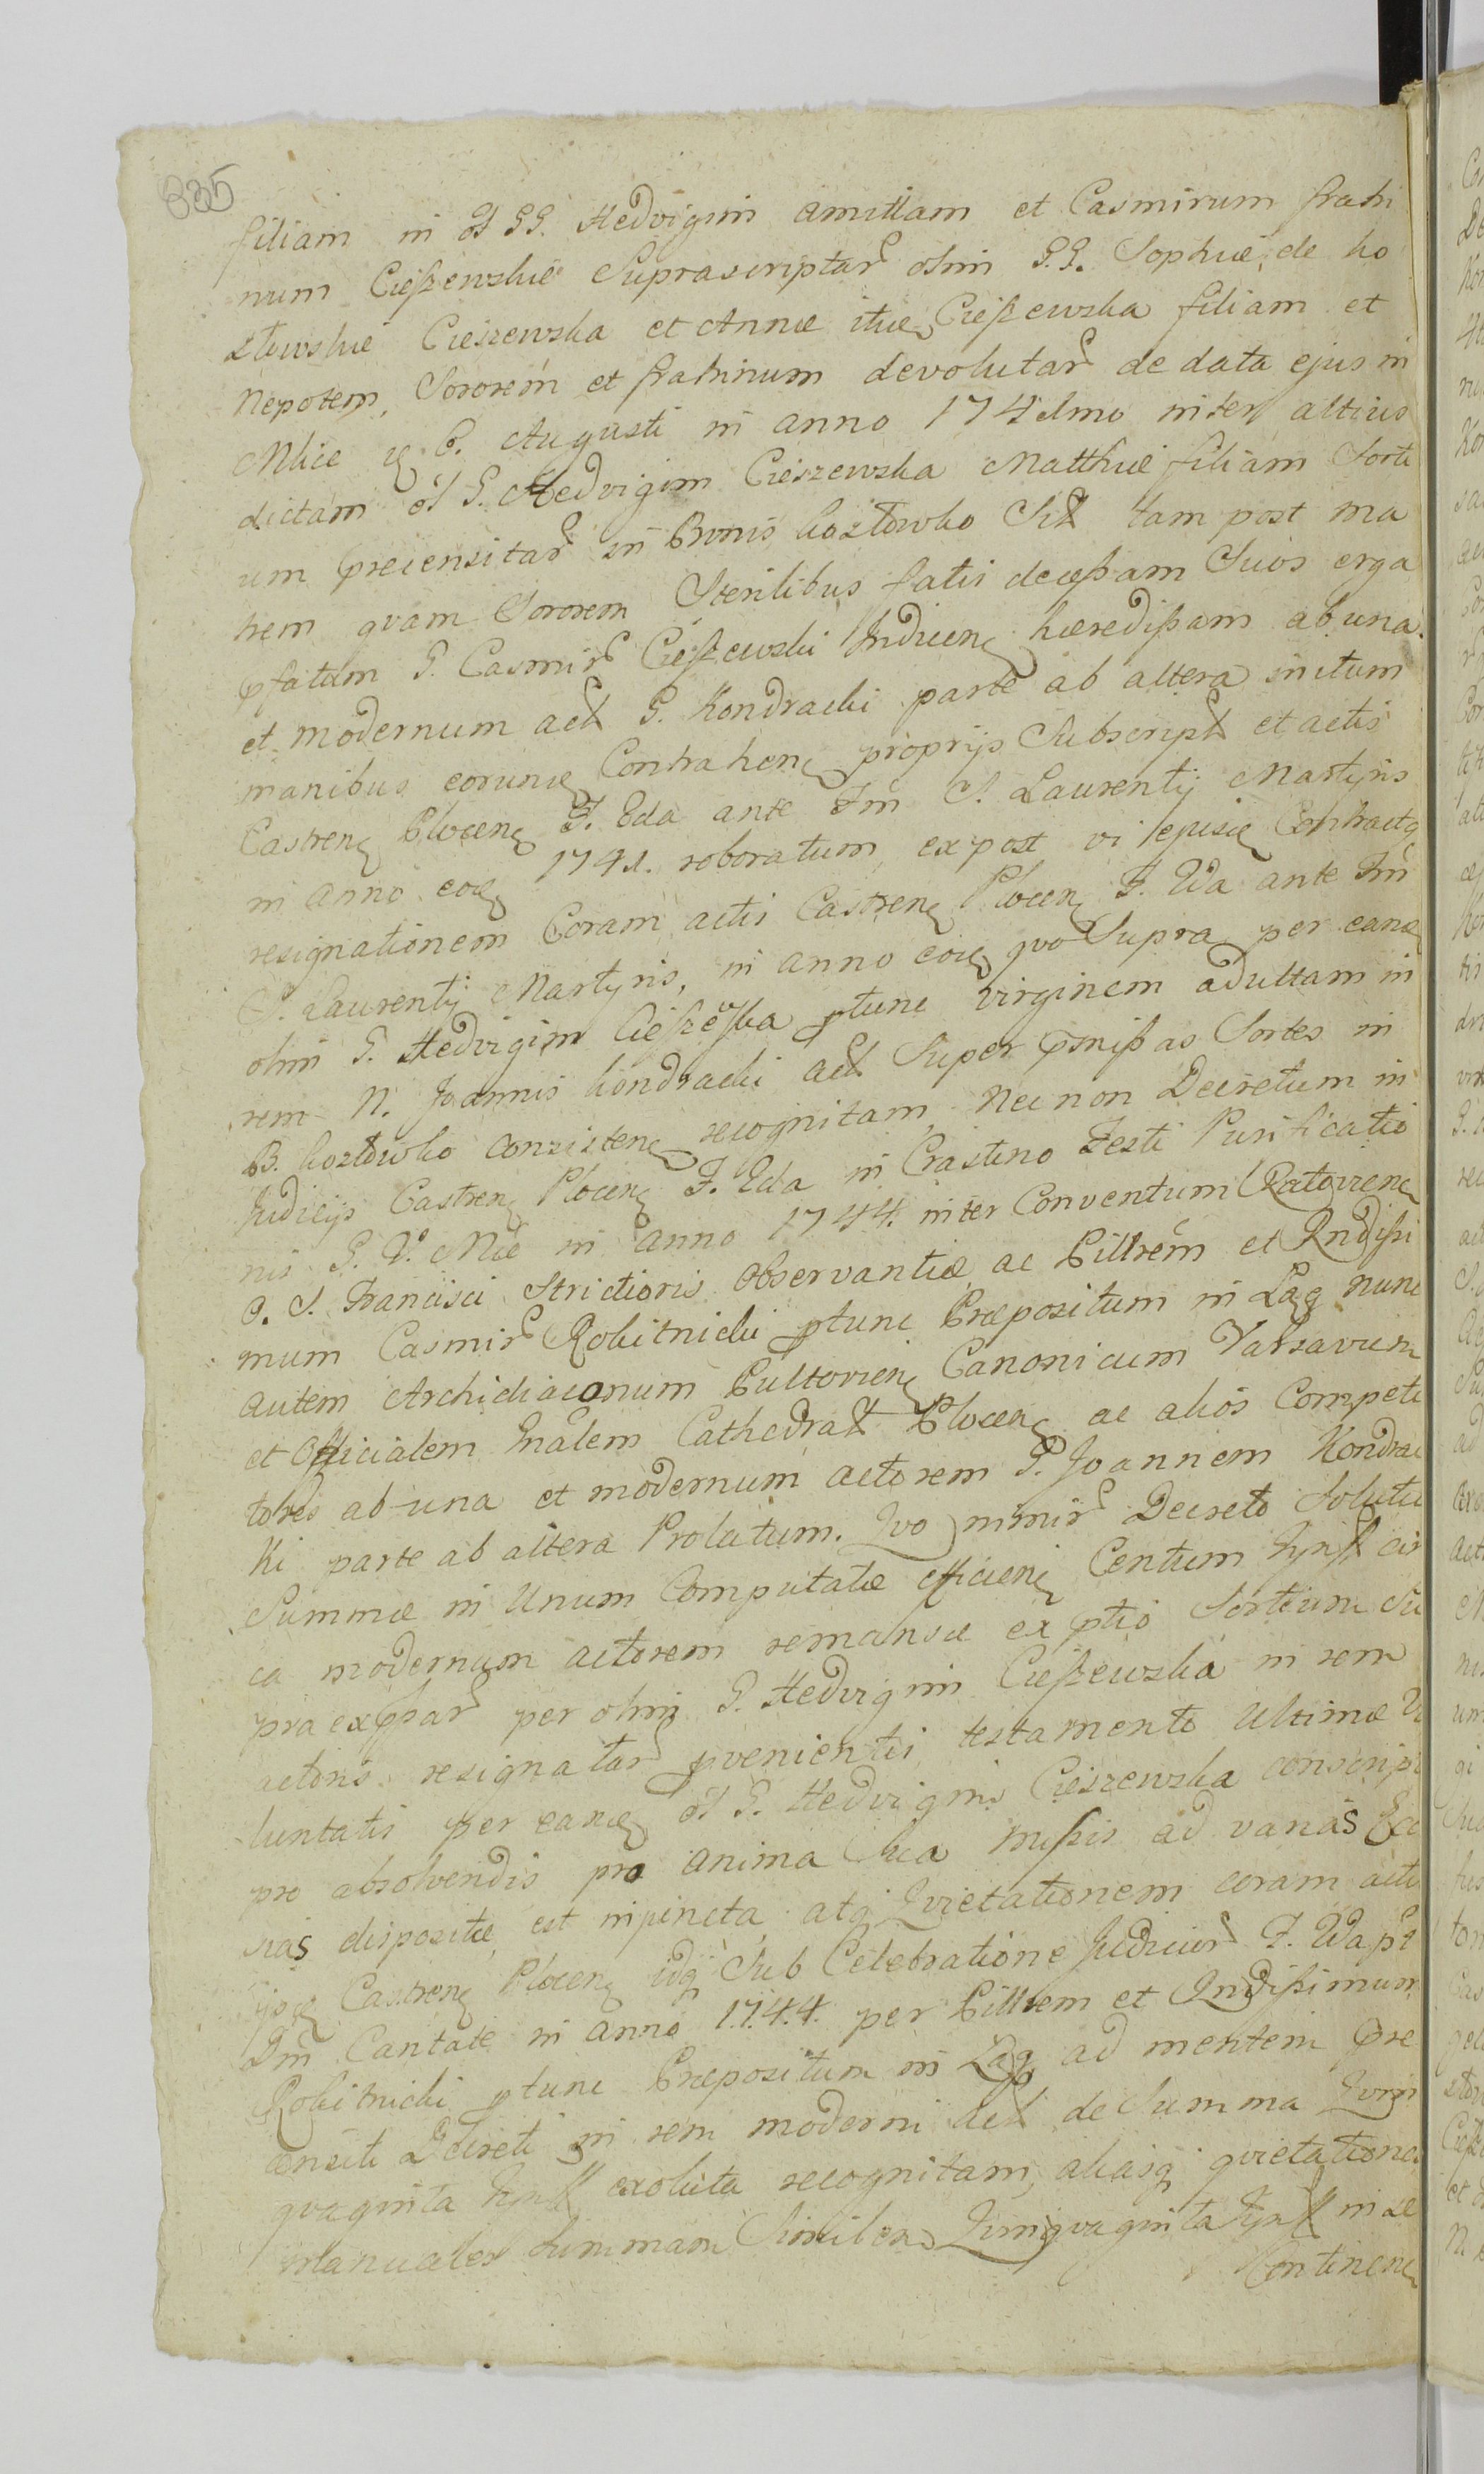 335
filiam in ol GG. Hedvigim amittam et Casmirum fratri
num Cieszewskie Suprascriptar olim G.G. Sophiæ de Ko
złowskie Cieszewska et Annæ itiæ Cieszewska filiam et
Nepotem, Sororem et fratrinum devolutar de data ejus in
dictam ol G. Hedvigim Cieszewska Matthiæ filiam Sorti
um precensitar in Bonis Kozłowko Sitt tam post ma
trem quam Sororem Sterilibus fatis decessam Suos erga
pfatum G. Casmir Cieszewski Indicen hæredissam ab una
et modernum act G. Kondracki parte ab altera initum
manibus eorund Contrahen proprijs Subscript et actis
Castren Plocen F. Eda ante Fm S. Laurentij Martyris
in anno eod 1741. roboratum, ex post vi ejusd Contractg
resignationem Coram actis Castren Plocen F. Wda ante Fm
S. Laurentij Martyris, in anno eod quo Supra per eand
olim G. Hedvigim Cieszewska ptunc virginem adultam in
rem N. Joannis Kondracki act Super pmissas Sortes in
B. Kozłowko consisten recognitam, nec non Decretum in
Judicijs Castren Plocen F. Eda in Crastino Festi Purificatio
nis G. V. Mæ in anno 1744. inter Conventum Ratovien
O. S. Francisci Strictioris Observantiæ ac Pillrem et Rndissi
mum Casmir Rokitnicki ptunc Præpositum in Łag nunc
autem Archidiaconum Pultovien Canonicum Varsavien
et Officialem Gnalem Cathedral Plocen ac alios Competi
tores ab una et modernum actorem G. Joannem Kondrac
ki parte ab altera Prolatum. Quo nimir Decreto Soluti
Summæ in Unum Computatæ efficien Centum Tynff cir
ca modernum actorem remansæ ex ptio Sortium Su
pra expssar per olim G. Hedvigim Cieszewska in rem
actoris resignatar pvenientis testamento Ultimæ Vo
luntatis per eand ol G. Hedvigim Cieszewska conscript
pro absolvendis pro anima Sua missis ad varias Ecc
sias dispositæ est injuncta atq Quietationem coram acti
ijsd Castren Plocen idq Sub Celebratione Judicior F. Wda pt
Dm Cantate in anno 1.7.4.4. per Pillrem et Rndissimum
Rokitnicki ptunc Præpositum in Łag ad mentem præ
censiti Decreti in rem moderni act de Summa Quin
quaginta Tynff exoluta recognitam, aliasq quietationes
manuales Summam Similem Quinquaginta Tynff in se
Continen